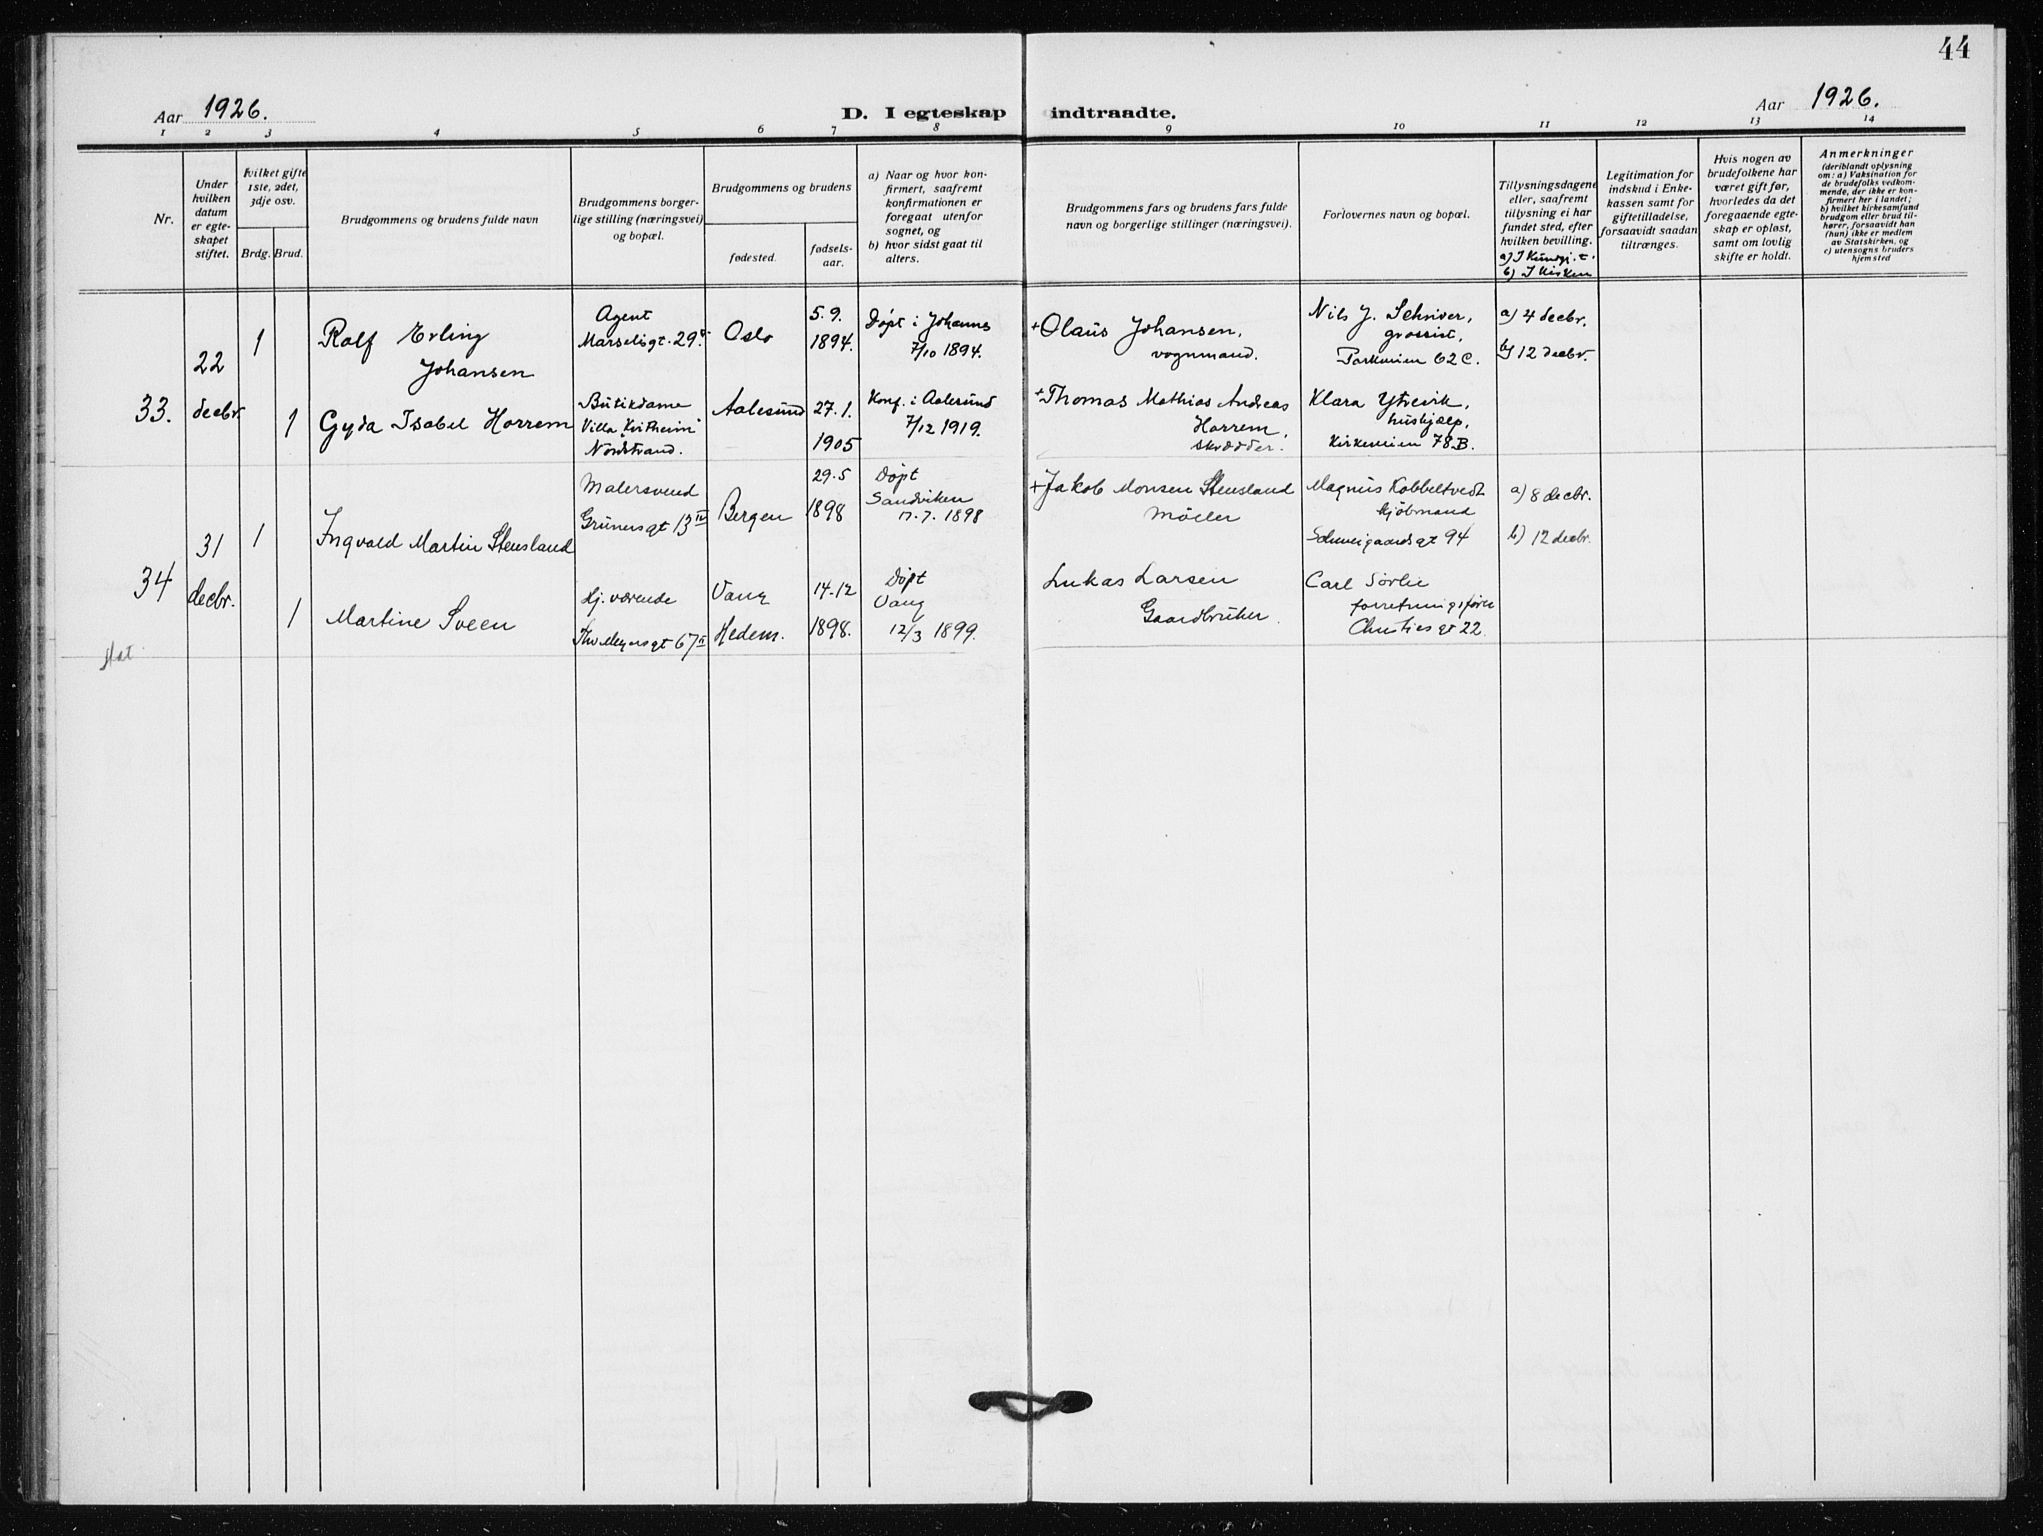 44
Aar 1926.
D. I egteskap indtraadte.
Aar 1926.
1 2 3 4 5 6 7 8 9 10 11 12 13 14
Nr.
Under
hvilken
datum
er egte-
skapet
stiftet.
Hvilket gifte
1ste, 2det,
3dje osv.
Brdg. Brud.
Brudgommens og brudens fulde navn
Brudgommens borger-
lige stilling (næringsvei)
og bopæl.
Brudgommens og brudens
fødested.
fødsels-
aar.
a) Naar og hvor kon-
firmert, saafremt
konfirmationen er
foregaat utenfor
sognet, og
b) hvor sidst gaat til
alters.
Brudgommens fars og brudens fars fulde
navn og borgerlige stillinger (næringsvei).
Forlovernes navn og bopæl.
Tillysningsdagene
eller, saafremt
tillysning ei har
fundet sted, efter
hvilken bevilling.
a) I Kungj. t.
b) I Kirken
Legitimation for
indskud i Enke-
kassen samt for
giftetilladelse,
forsaavidt saadan
tiltrænges.
Hvis nogen av
brudefolkene har
været gift før,
hvorledes da det
foregaaende egte-
skap er opløst,
samt om lovlig
skifte er holdt.
Anmerkninger
(deriblandt oplysning
om: a) Vaksination for
de brudefolks vedkom-
mende, der ikke er kon-
firmert her i landet;
b) hvilket kirkesamfund
brudgom eller brud til-
hører, forsaavidt han
(hun) ikke er medlem
av Statskirken, og
c) utensogns bruders
hjemsted
33.
22
decbr.
1
Ralf Erling
Johansen
Agent
Marseligt. 29
Oslo
5. 9.
1894.
Døpt i Johannes
7/10 1894.
+Olaus Johansen,
vognmand.
Nils J. Schriver,
grossist,
Parkveien 62 C.
a) 4 decbr.
b) 12 decbr.
1
Gyda Isabel Horrem
Butikdame
Villa "Kvitheim"
Nordstrand.
Aalesund
27. 1.
1905
Konf. i Aalesund
7/12 1919.
+Thomas Mathias Andreas
Horrem,
skrædder.
Klara Ytrevik,
hushjælp,
Kirkeveien 78 B.
34
31
decbr.
1
Ingvald Martin Stensland
Malersvend
Grünersgt 13 IV
Bergen
29-5
1898
Døpt
Sandviken
17. 7. 1898
+Jakob Monsen Stensland
Møller
Magnus Kobbeltvedt
kjøbmand
Schweigaardsgt 94
a) 8 decbr.
b) 12 decbr.
1
Martine Sveen
Hj. værende
Thv Meyersgt 67 II
Vang
Hedem.
14-12
1898.
Døpt
Vang
12/3 1899.
Lukas Larsen
Gaardbruker.
Carl Sørlie
forretningsfører
Christies gt 22.